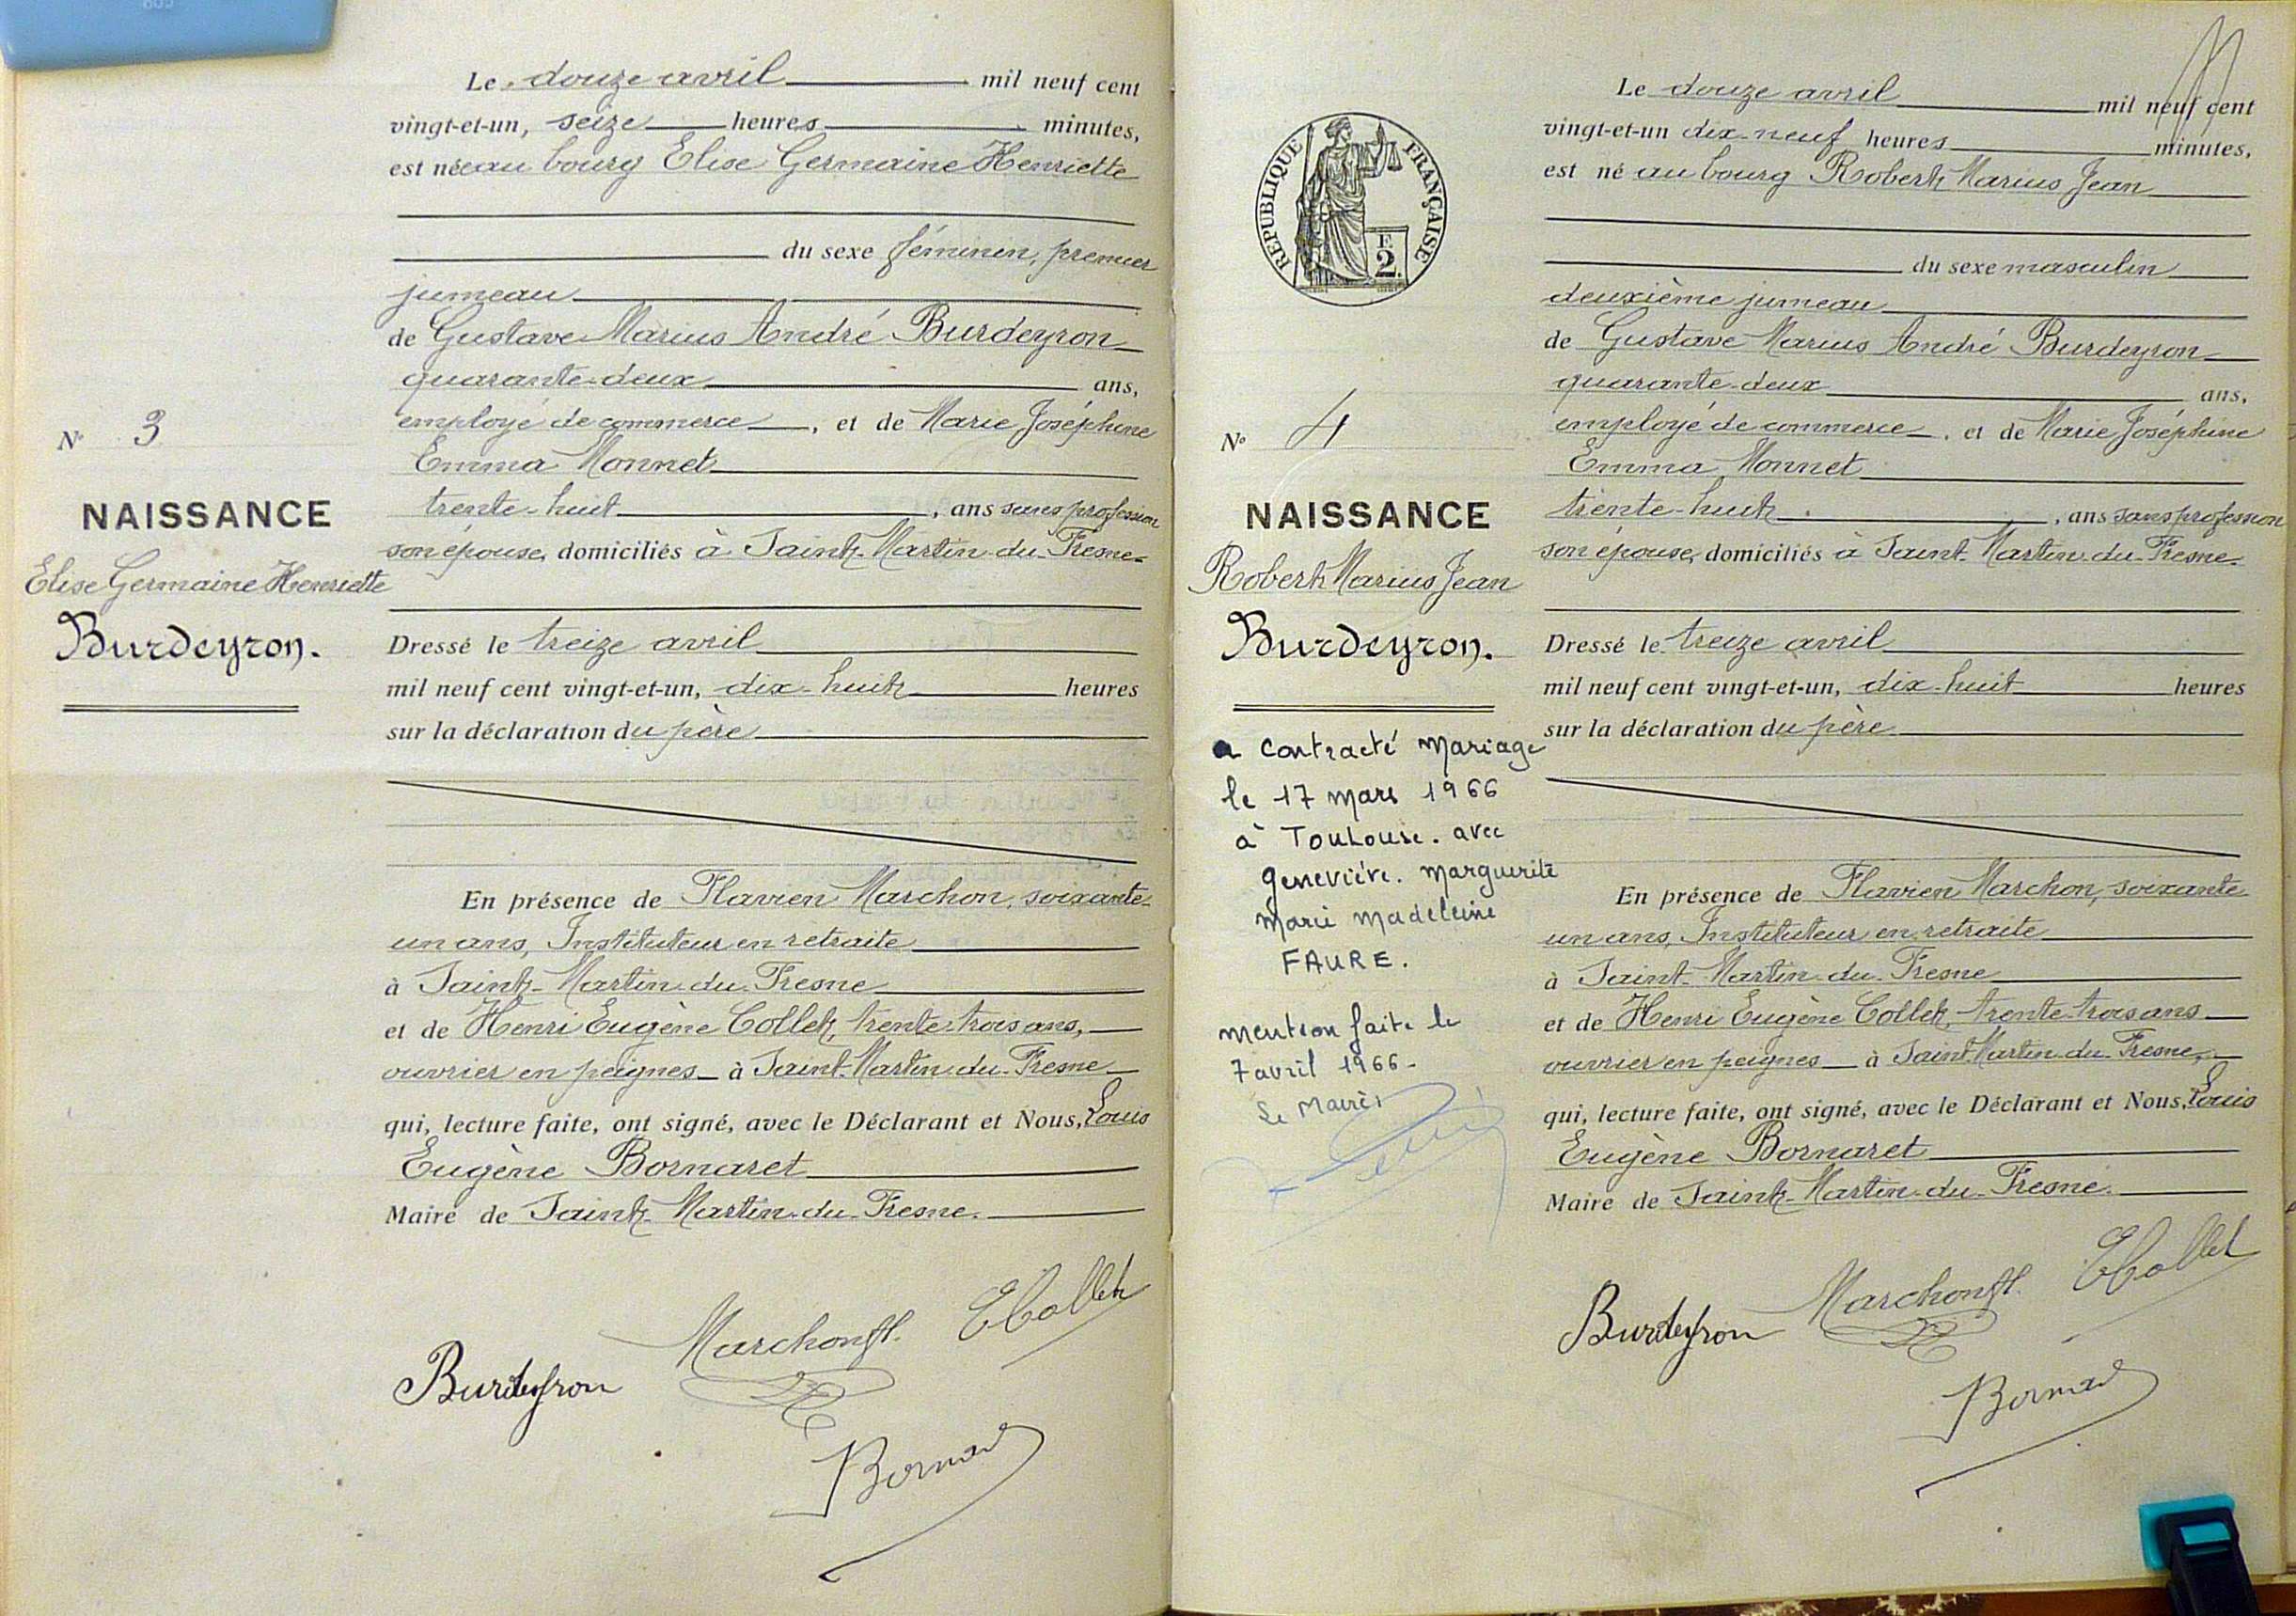 Le douze avril mil neuf cent
vingt-et-un, seize heures minutes,
est née au bourg Elise Germaine Henriette
du sexe féminin, premier
jumeau
de Gustave Marius André Burdeyron
quarante-deux ans,
employé de commerce, et de Marie Joséphine
Emma Monnet
trente-huit, ans sans profession
son épouse, domiciliés à Saint-Martin-du-Fresne
N° 3
NAISSANCE
Elise Germaine Henriette
Burdeyron.
Dressé le treize avril
mil neuf cent vingt-et-un, dix-huit heures
sur la déclaration du père
En présence de Flavien Marchon, soixante-
un ans, Instituteur en retraite
à Saint-Martin-du-Fresne
et de Henri Eugène Collet, trente-trois ans,
ouvrier en peignes à Saint-Martin-du-Fresne
qui, lecture faite, ont signé, avec le Déclarant et Nous, Louis
Eugène Bornaret
Maire de Saint-Martin-du-Fresne.
Burdeyron
Marchon fl.
E Collet
REPUBLIQUE FRANÇAISE
F.
2.
N° 4
NAISSANCE
Robert Marius Jean
Burdeyron.
a contracté mariage
le 17 mars 1966
à Toulouse. avec
Geneviève. Marguerite
Marie Madeleine
FAURE.
mention faite le
7 avril 1966-
Le Maire,
Le douze avril mil neuf cent
vingt-et-un dix-neuf heures minutes,
est né au bourg Robert Marius Jean
du sexe masculin
deuxième jumeau
de Gustave Marius André Burdeyron
quarante-deux ans,
employé de commerce, et de Marie Joséphine
Emma Monnet
trente-huit, ans sans profession
son épouse, domiciliés à Saint-Martin-du-Fresne.
Dressé le treize avril
mil neuf cent vingt-et-un, dix-huit heures
sur la déclaration du père
En présence de Flavien Marchon, soixante
un ans, Instituteur en retraite
à Saint-Martin-du-Fresne
et de Henri Eugène Collet, trente-trois ans
ouvrier en peignes à Saint-Martin-du-Fresne,
qui, lecture faite, ont signé, avec le Déclarant et Nous, Louis
Eugène Bornaret
Maire de Saint-Martin-du-Fresne.
Burdeyron
Marchon fl.
E Collet